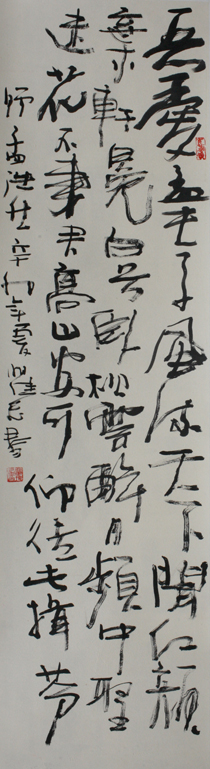 吾愛孟夫子風流天下聞紅顏
棄軒冕白首卧松雲醉月頻中聖
迷花不事君高山安可仰徒此揖芬
孟浩然辛卯年夏書